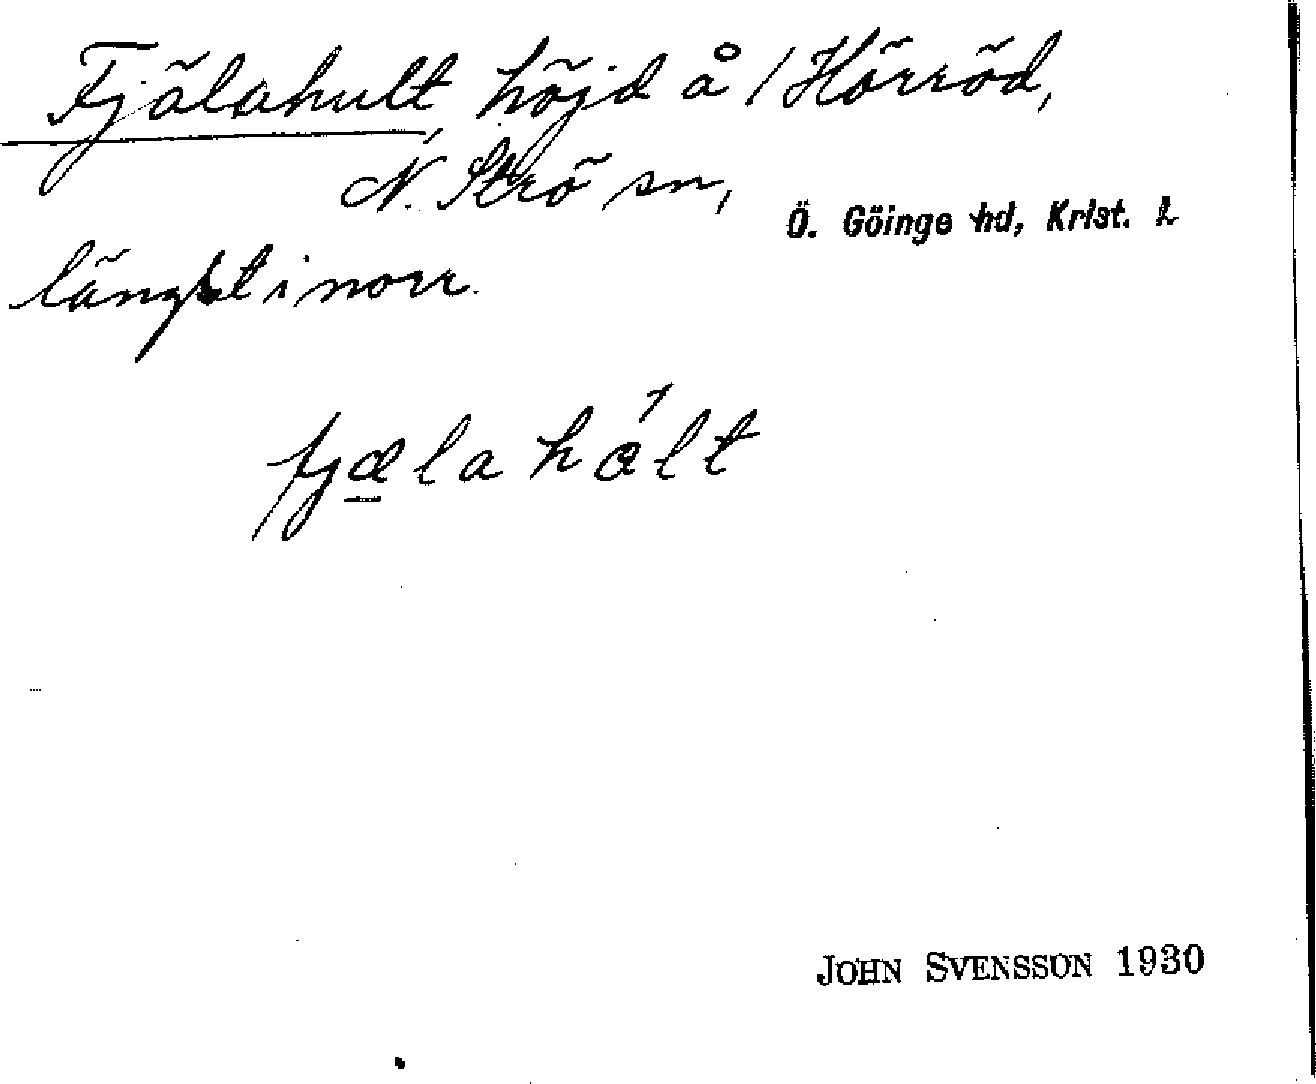 Fjälahult, höjd å / Hörröd,
N. Strö sn,
Ö. Göinge hd, Krist. L
längst i norr.
fjælahált
JOHN SVENSSON 1930